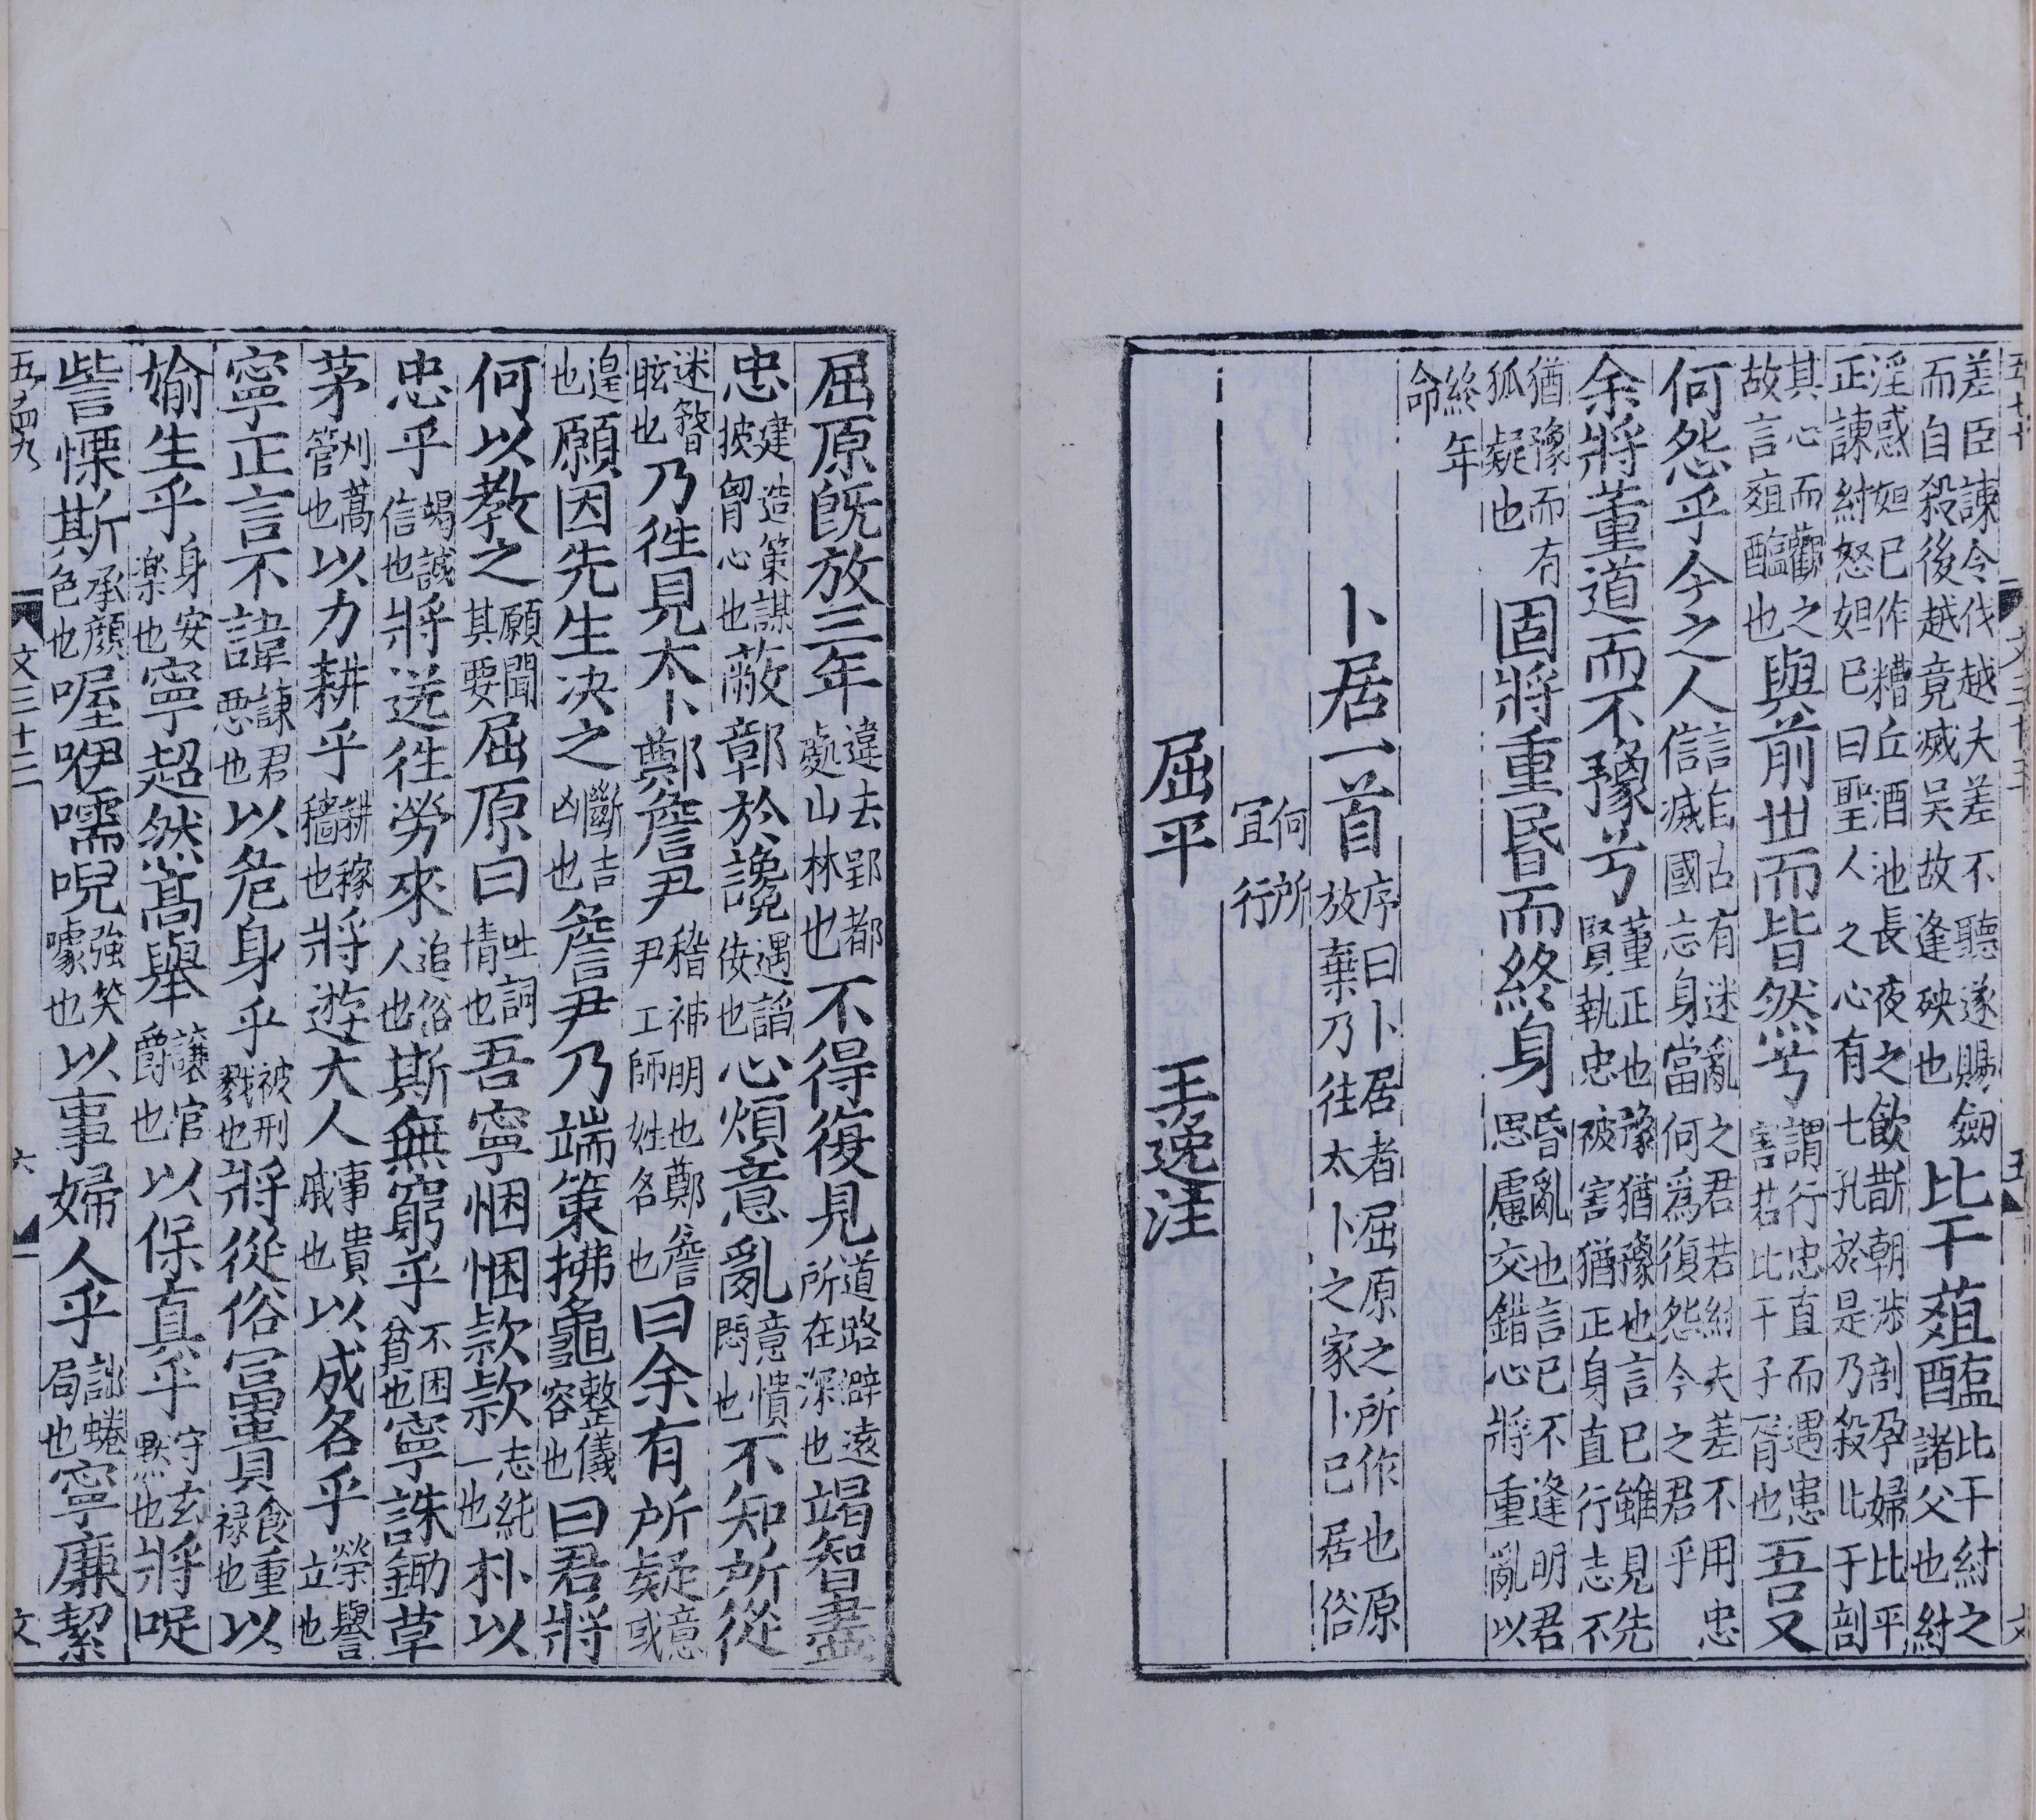 差臣諫令伐越夫差不聽遂賜劒而自殺後越竟滅吳故逢殃也比干葅醢比干紂之諸父也紂
淫惑妲已作糟丘酒池長夜之飲斮朝涉剖孕婦比干正諫紂怒妲已曰聖人之心有七孔於是乃殺比干剖
其心而觀之故言葅醢也與前世而皆然兮謂行忠直而遇患害若比干子胥也吾又
何怨乎今之人言自古有迷亂之君若紂夫差不用忠信滅國忘身當何爲復怨今之君乎
余將董道而不豫兮董正也豫猶豫也言已雖見先賢執忠被害猶正身直行志不
猶豫而有狐疑也固將重昬而終身昏亂也言已不逢明君思慮交錯心將重亂以
終年命
卜居一首序曰卜居者屈原之所作也原放棄乃往太卜之家卜已居俗
何所冝行
屈平 王逸注
屈原旣放三年違去郢都處山林也不得復見道路僻遠所在深也竭智盡
忠建造策謀披胷心也蔽鄣於讒遇諂佞也心煩意亂意憒悶也不知所從
迷瞀眩也乃徃見太卜鄭詹尹稽神明也鄭詹尹工師姓名也曰余有所疑意或
遑也願因先生决之斷吉凶也詹尹乃端策拂龜整儀容也曰君將
何以教之願聞其要屈原曰吐詞情也吾寧悃悃款款志純一也朴以
忠乎竭誠信也將送徃勞來追俗人也斯無窮乎不困貧也寧誅鋤草
茅刈蒿管也以力耕乎耕稼穡也將遊大人事貴戚也以成名乎榮譽立也
寧正言不諱諫君惡也以危身乎被刑戮也將從俗冨貴食重禄也以
媮生乎身安楽也寧超然髙舉讓官爵也以保真乎守玄默也將哫
訾慄斯承顔色也喔咿嚅唲強笑噱也以事婦人乎詘蜷局也寧廉潔
五ノ四九
文三十三
六